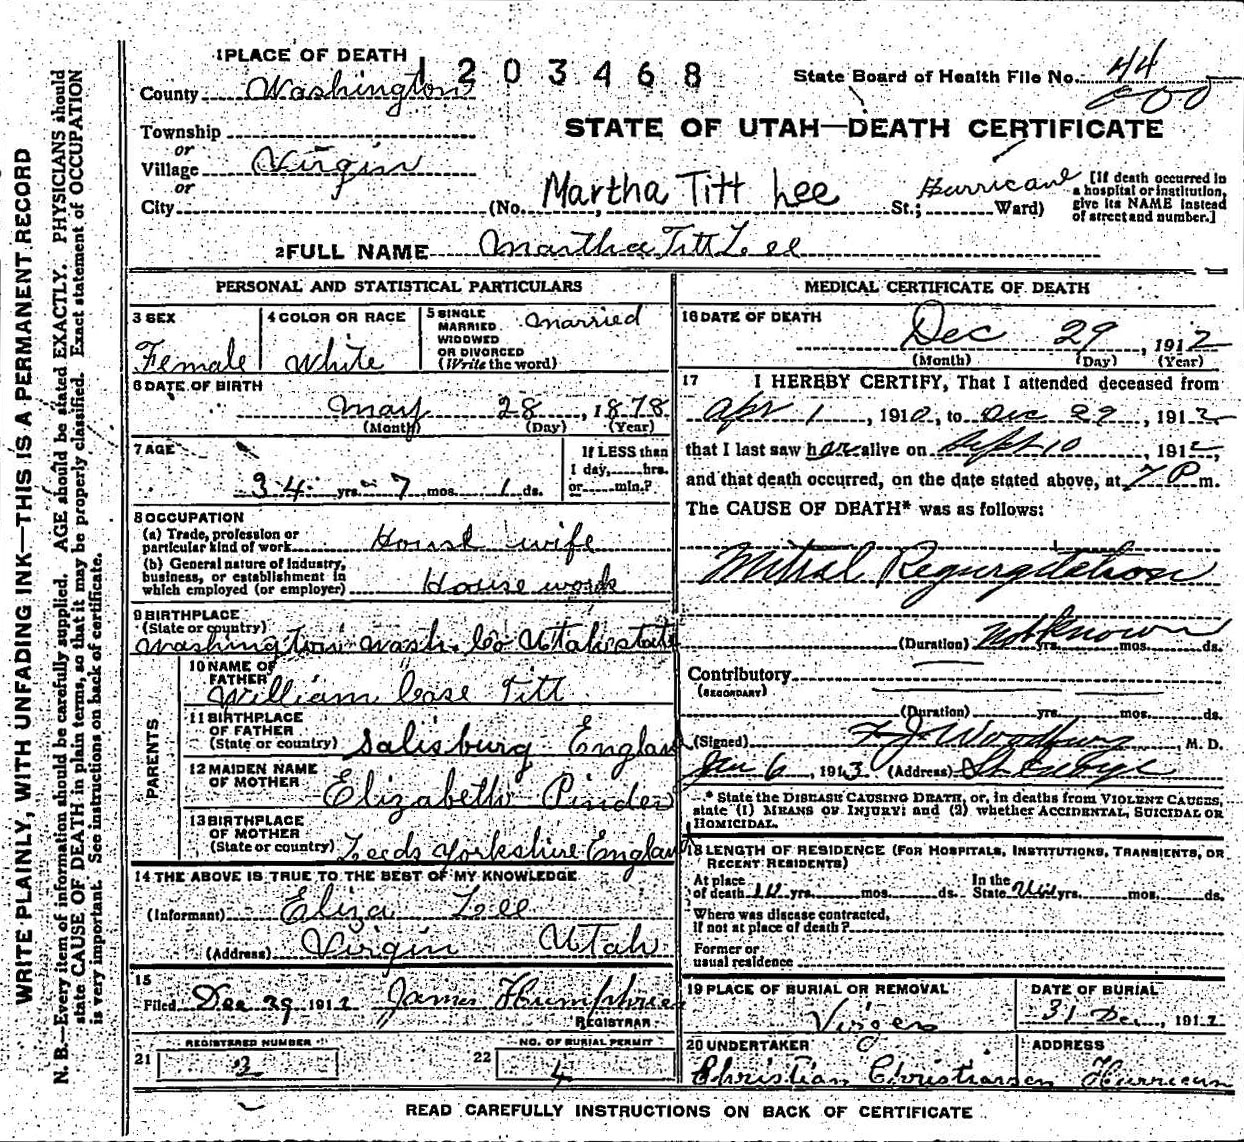 1 PLACE OF DEATH
1203468
State Board of Health File No. 44
County Washington
STATE OF UTAH—DEATH CERTIFICATE
Township
or
Village Virgin
or
City (No. Martha Titt Lee St.; Hurricane Ward)
[If death occurred in a hospital or institution, give its NAME instead of street and number.]
2 FULL NAME Martha Titt Lee
PERSONAL AND STATISTICAL PARTICULARS
3 SEX
Female
4 COLOR OR RACE
White
5 SINGLE
MARRIED
WIDOWED
OR DIVORCED
(Write the word)
Married
6 DATE OF BIRTH
May 28, 1878
(Month) (Day) (Year)
7 AGE
34 yrs. 7 mos. 1 ds.
If LESS than
1 day, hrs.
or min.?
8 OCCUPATION
(a) Trade, profession or
particular kind of work House wife
(b) General nature of industry,
business, or establishment in
which employed (or employer) House work
9 BIRTHPLACE
(State or country)
Washington Wash. Co Utah state
PARENTS
10 NAME OF
FATHER
William Case Titt
11 BIRTHPLACE
OF FATHER
(State or country) Salisburg England
12 MAIDEN NAME
OF MOTHER
Elizabeth Pinder
13 BIRTHPLACE
OF MOTHER
(State or country) Leeds Yorkshire England
14 THE ABOVE IS TRUE TO THE BEST OF MY KNOWLEDGE
(Informant) Eliza Lee
(Address) Virgin Utah
15
Filed Dec 29 1912 James Humphries
REGISTRAR
21 REGISTERED NUMBER
22 NO. OF BURIAL PERMIT
4
MEDICAL CERTIFICATE OF DEATH
16 DATE OF DEATH
Dec 29, 1912
(Month) (Day) (Year)
17 I HEREBY CERTIFY, That I attended deceased from
Apr 1, 1912, to Dec 29, 1912
that I last saw her alive on Sept 10, 1912,
and that death occurred, on the date stated above, at 7 P m.
The CAUSE OF DEATH* was as follows:
Mitral Regurgitation
(Duration) Not Known yrs. mos. ds.
Contributory
(SECONDARY)
(Duration) yrs. mos. ds.
(Signed) F J Woodbury, M. D.
Jan 6, 1913 (Address) St George
* State the DISEASE CAUSING DEATH, or, in deaths from VIOLENT CAUSES,
state (1) MEANS OF INJURY; and (2) whether ACCIDENTAL, SUICIDAL OR
HOMICIDAL.
18 LENGTH OF RESIDENCE (FOR HOSPITALS, INSTITUTIONS, TRANSIENTS, OR
RECENT RESIDENTS)
At place
of death yrs. mos. ds.
In the
State yrs. mos. ds.
Where was disease contracted,
If not at place of death?
Former or
usual residence
19 PLACE OF BURIAL OR REMOVAL
DATE OF BURIAL
31 Dec, 1912
20 UNDERTAKER
Christian Christiansen
ADDRESS
Hurricane
READ CAREFULLY INSTRUCTIONS ON BACK OF CERTIFICATE
WRITE PLAINLY, WITH UNFADING INK—THIS IS A PERMANENT RECORD
N. B.—Every item of information should be carefully supplied. AGE should be stated EXACTLY. PHYSICIANS should
state CAUSE OF DEATH in plain terms, so that it may be properly classified. Exact statement of OCCUPATION
is very important. See instructions on back of certificate.